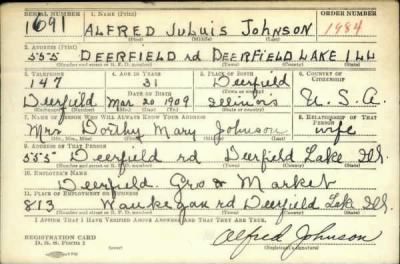 SERIAL NUMBER 1. NAME (Print) ORDER NUMBER
1691 ALFRED JULUIS JOHNSON 1984
(First) (Middle) (Last)
2. ADDRESS (Print)
555 DEERFIELD rd DEERFIELD LAKE ILL
(Number and street or R. F. D. number) (Town) (County) (State)
3. TELEPHONE 4. AGE IN YEARS 5. PLACE OF BIRTH 6. COUNTRY OF CITIZENSHIP
147 31 Deerfield
DATE OF BIRTH (Town or county)
Deerfield Mar 20 1909 Illinois U.S.A.
(Exchange) (Number) (Mo.) (Day) (Yr.) (State or country)
7. NAME OF PERSON WHO WILL ALWAYS KNOW YOUR ADDRESS 8. RELATIONSHIP OF THAT PERSON
Mrs Dorthy Mary Johnson wife
(Mr., Mrs., Miss) (First) (Middle) (Last)
9. ADDRESS OF THAT PERSON
555 Deerfield rd Deerfield Lake Ill.
(Number and street or R. F. D. number) (Town) (County) (State)
10. EMPLOYER'S NAME
Deerfield. Gro & Market
11. PLACE OF EMPLOYMENT OR BUSINESS
813 Waukegan rd Deerfield Lake Ill.
(Number and street or R. F. D. number) (Town) (County) (State)
I AFFIRM THAT I HAVE VERIFIED ABOVE ANSWERS AND THAT THEY ARE TRUE.
REGISTRATION CARD
D. S. S. Form 1
Alfred Johnson
(Registrant's signature)